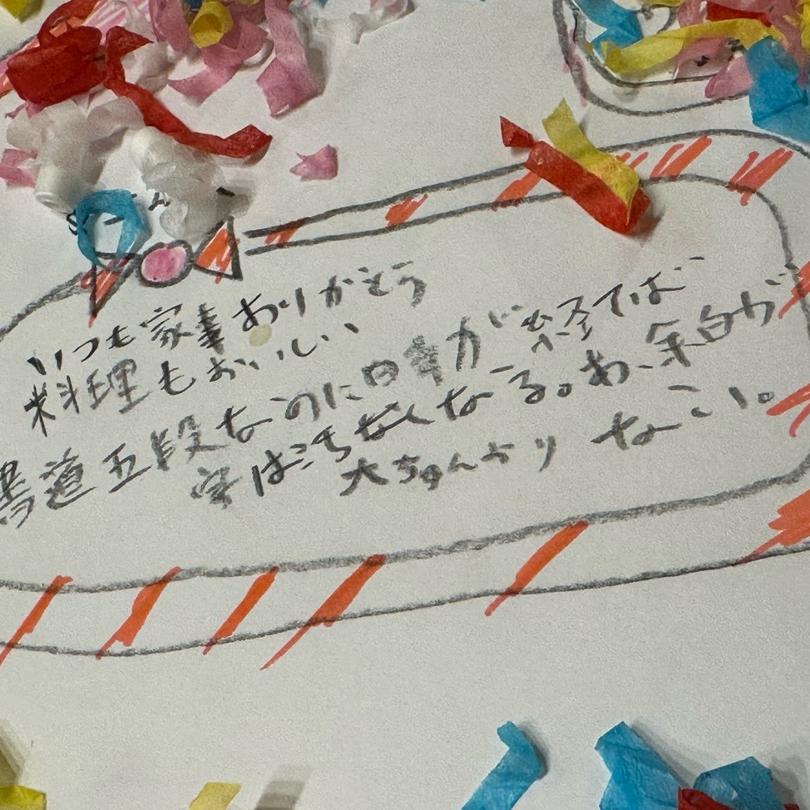 いつも家事ありがとう
料理もおいしい
書道五段なのに時が経てば
字は なくなる。あ、余白が
大ちゃんより ない。